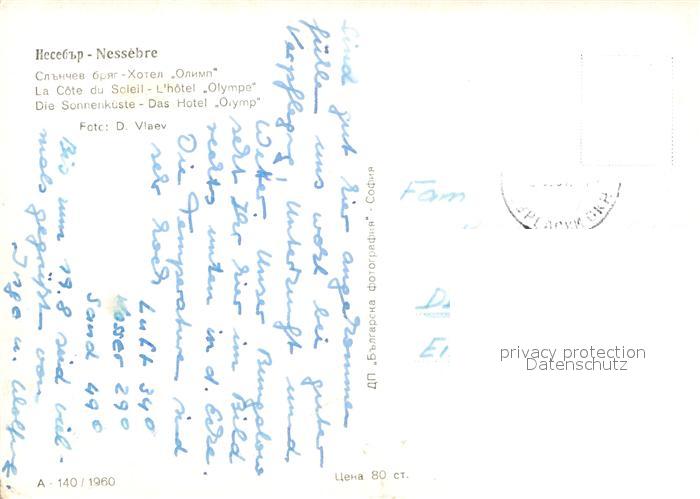 Несебър - Nessèbre
Слънчев бряг - Хотел „Олимп“
La Côte du Soleil - L'hôtel „Olympe“
Die Sonnenküste - Das Hotel „Olymp“
Foto: D. Vlaev
Sind gut hier angekommen
fühlen uns wohl bei guter
Verpflegung, Unterkunft und
Wetter. Unser Bungalow
seht Ihr hier im Bild
rechts unten in d. Ecke.
Die Temperaturen sind
sehr hoch
Luft 340
Wasser 290
Sand 490
Bis zum 19.8 seid viel-
mals gegrüßt von
Inge u.
ДП „Българска фотография“ - София
Fam
privacy protection
Datenschutz
А - 140 / 1960
Цена 80 ст.